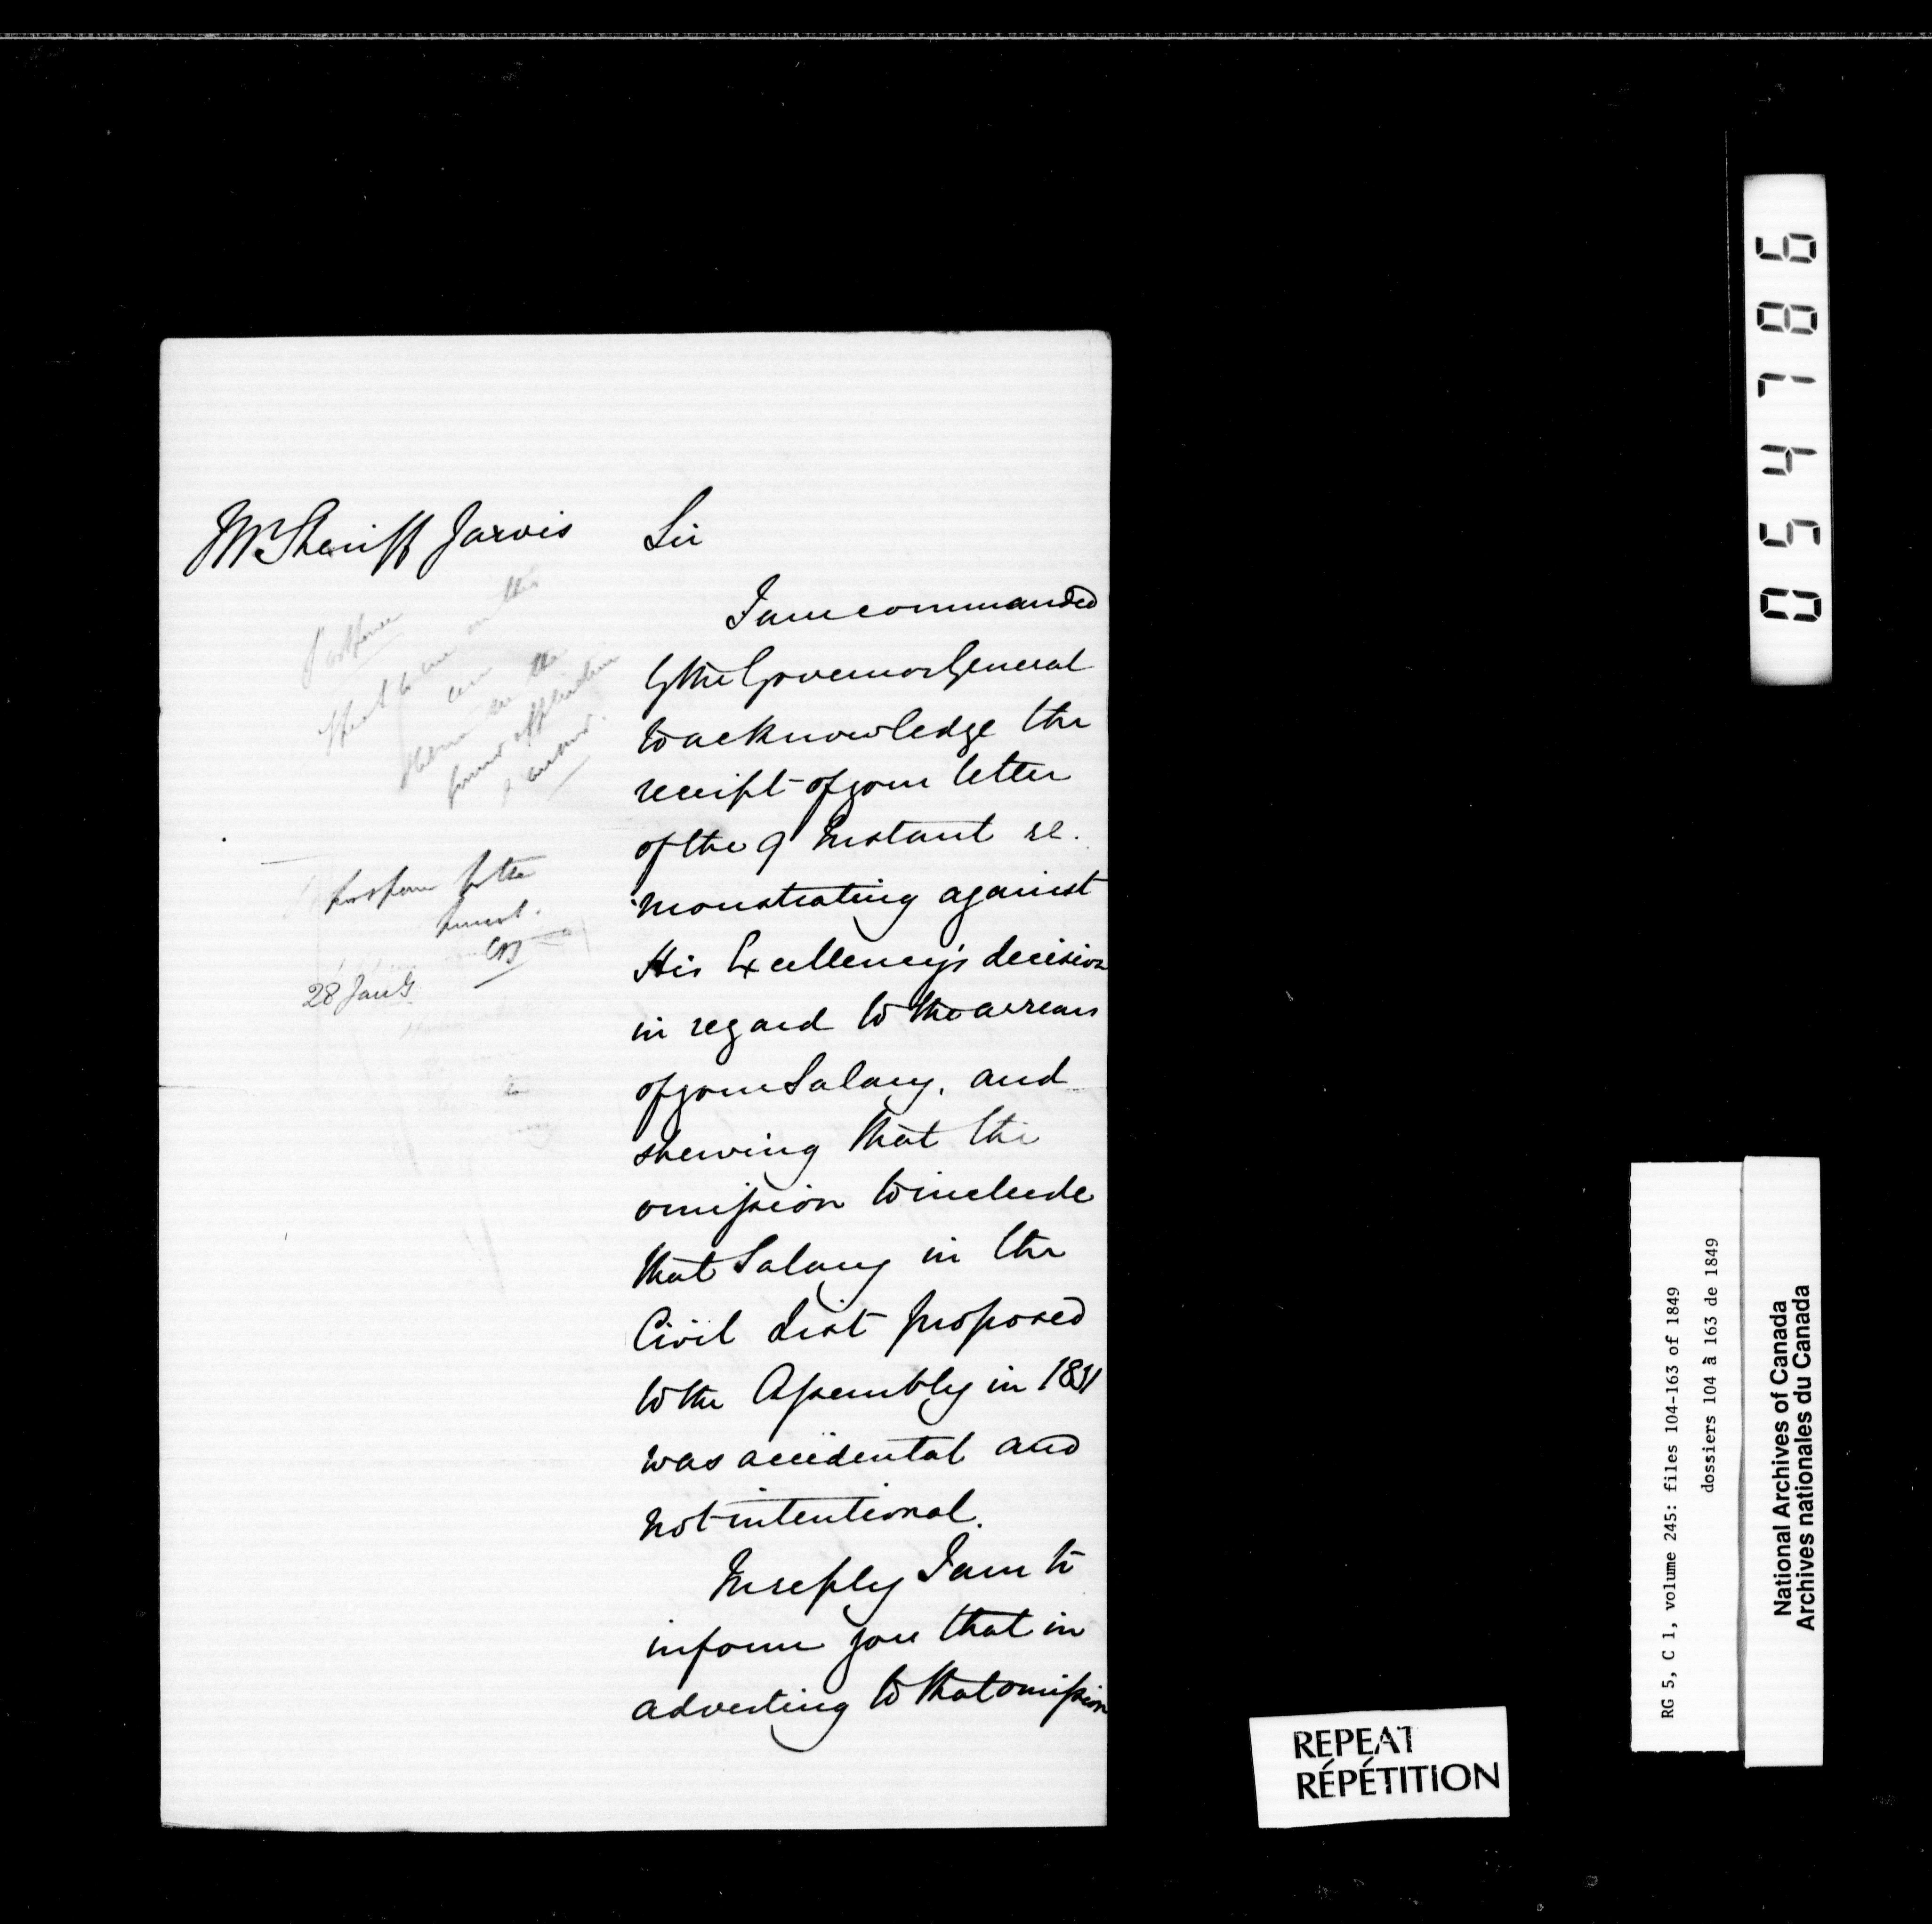 Mr Sheriff Jarvis
Sir
I am commanded
by the Governor General
to acknowledge the
receipt of your letter
of the 9 Instant re-
monstrating against
His Excellency's decision
in regard to the arrears
of your Salary, and
shewing that the
omission to include
that Salary in the
Civil List proposed
to the Assembly in 1831
was accidental and
not intentional.
In reply I am to
inform you that in
adverting to that omission
Postpone
on the
the
former application
postpone for the
present.
28 Jany
054786
RG 5, C 1, volume 245: files 104-163 of 1849
dossiers 104 à 163 de 1849
National Archives of Canada
Archives nationales du Canada
REPEAT
RÉPÉTITION